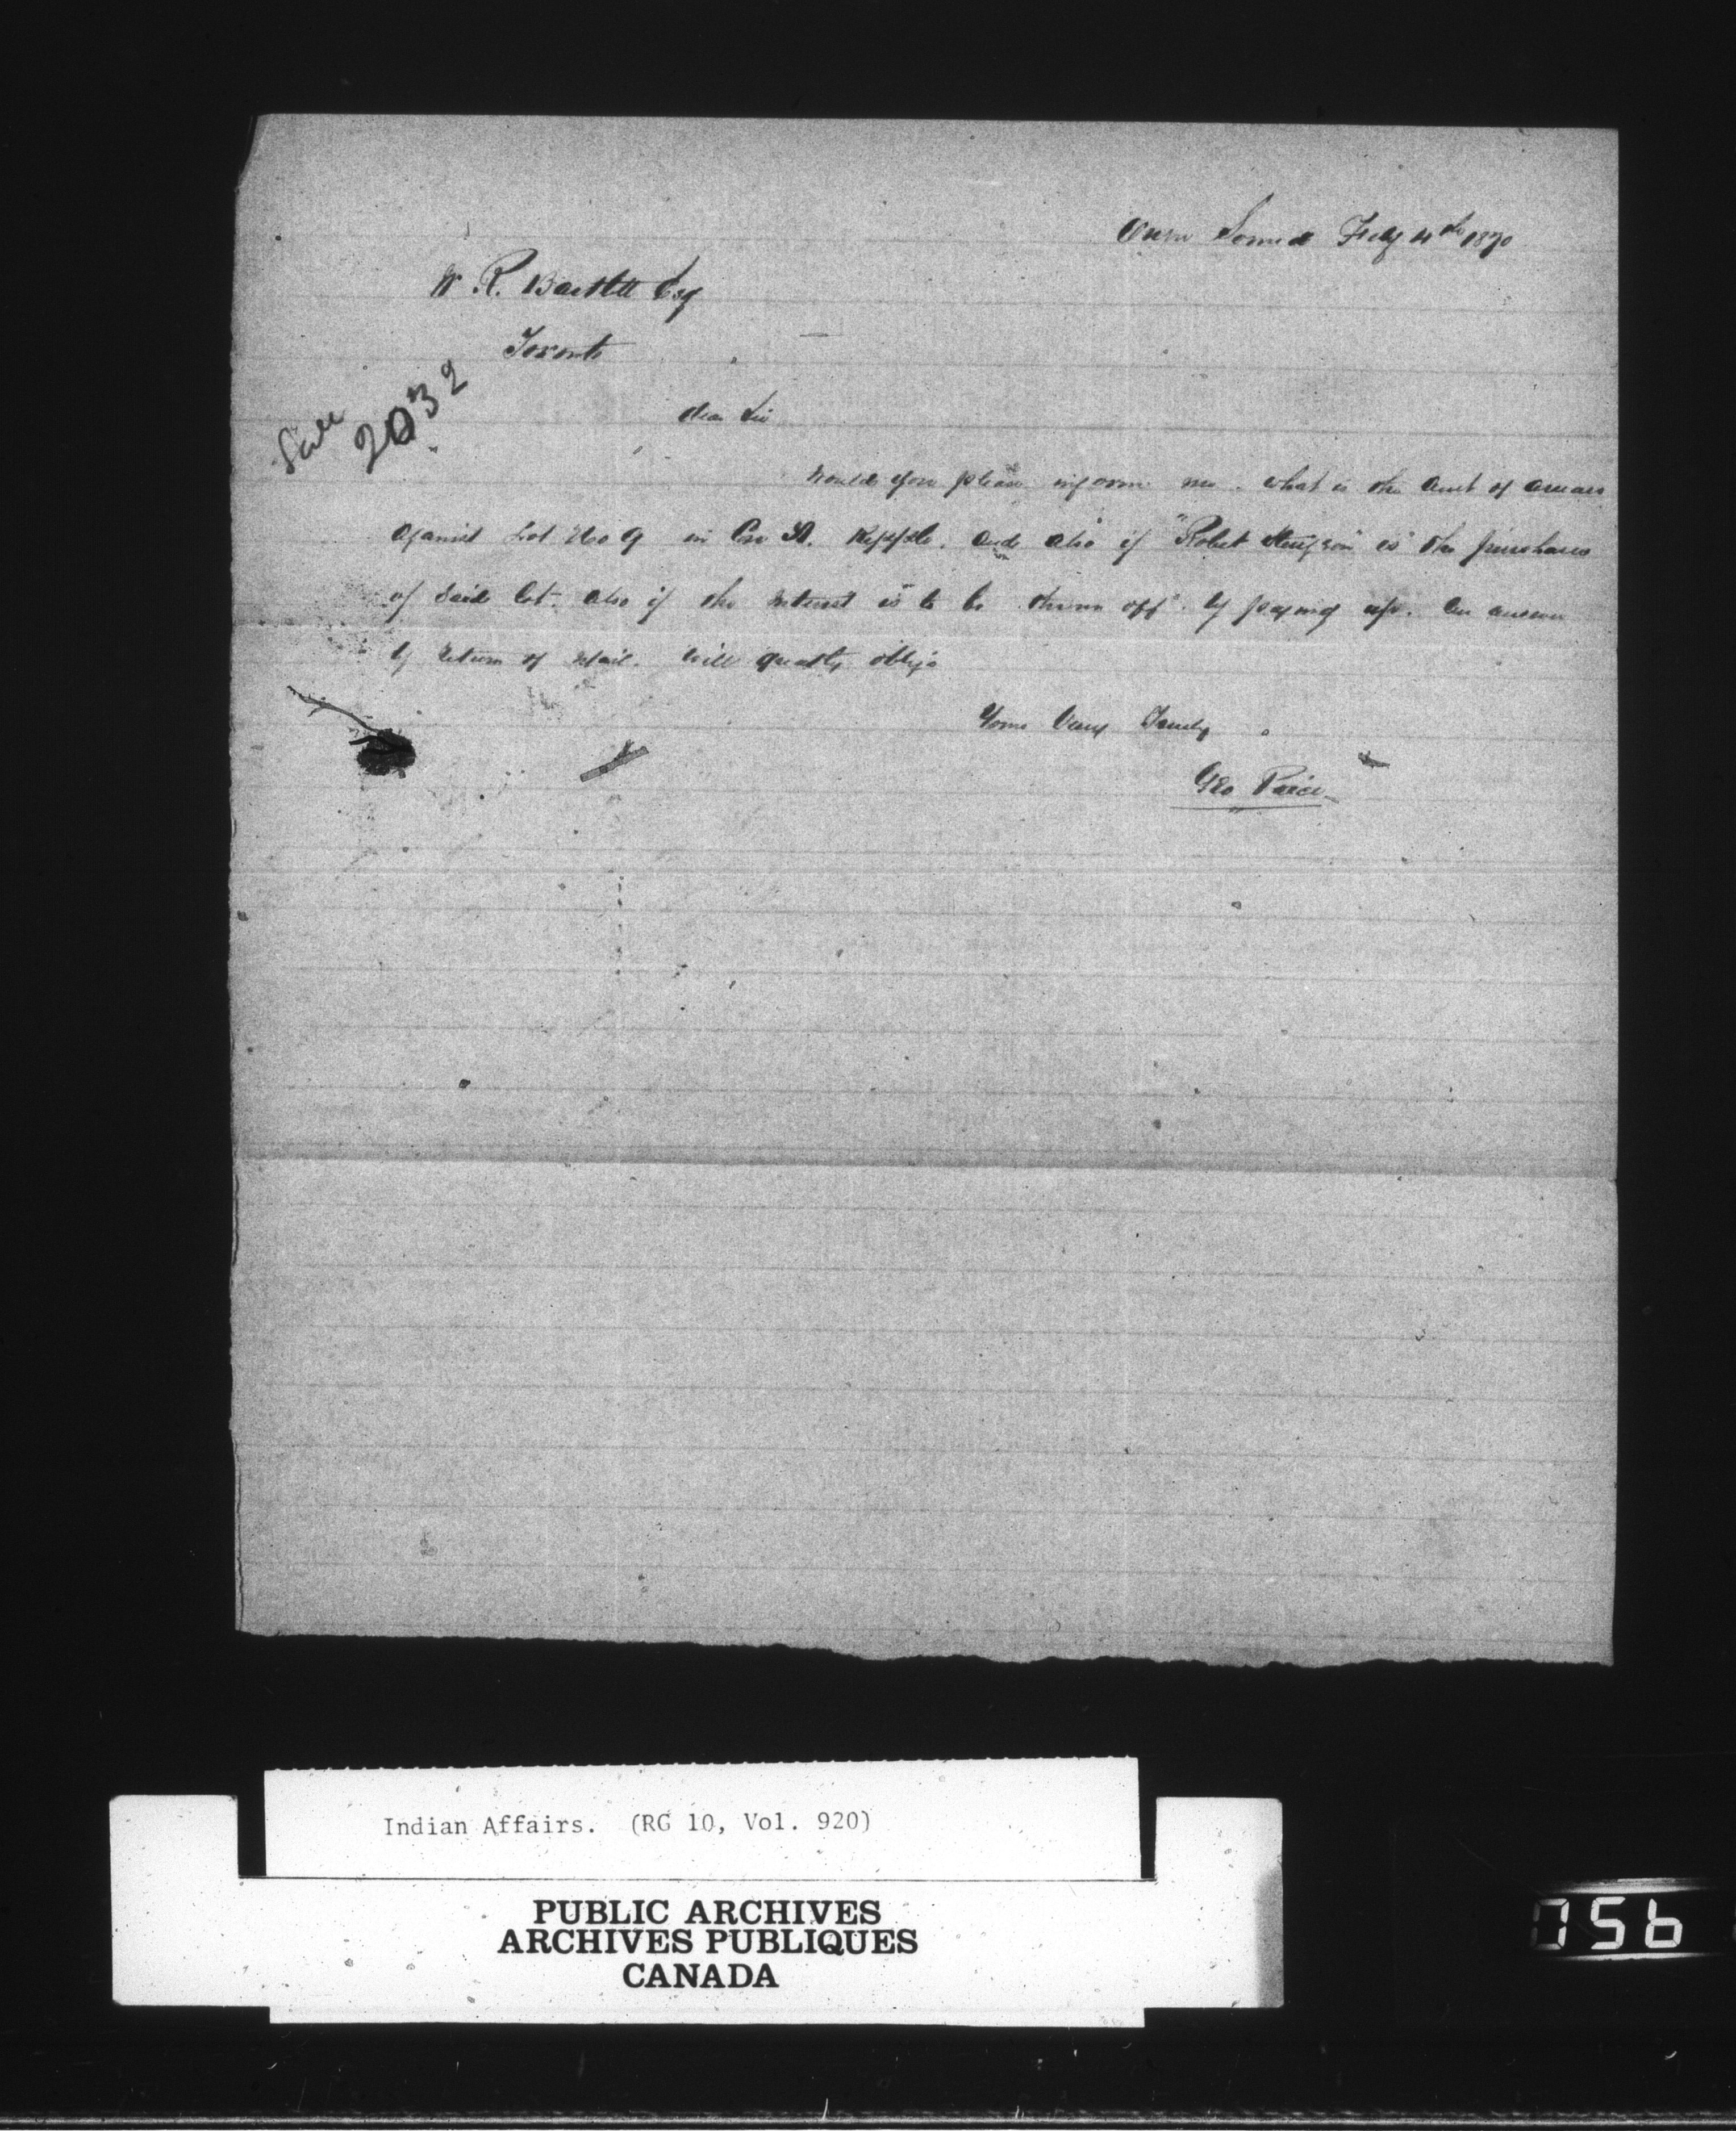 Owen Sound Feby 4th 1870
W. R. Bartlett Esq
Toronto
Sale
2032
Dear Sir
Would you please inform me. what is the amt of arrears
against Lot No 9 in Con A. Kepple. and also if "Robert is the purchaser
of said lot. also if the interest is to be thrown off. by paying up. An answer
by return of Mail. will greatly oblige
Yours Very Truly
Geo Price
Indian Affairs. (RG 10, Vol. 920)
PUBLIC ARCHIVES
ARCHIVES PUBLIQUES
CANADA
756